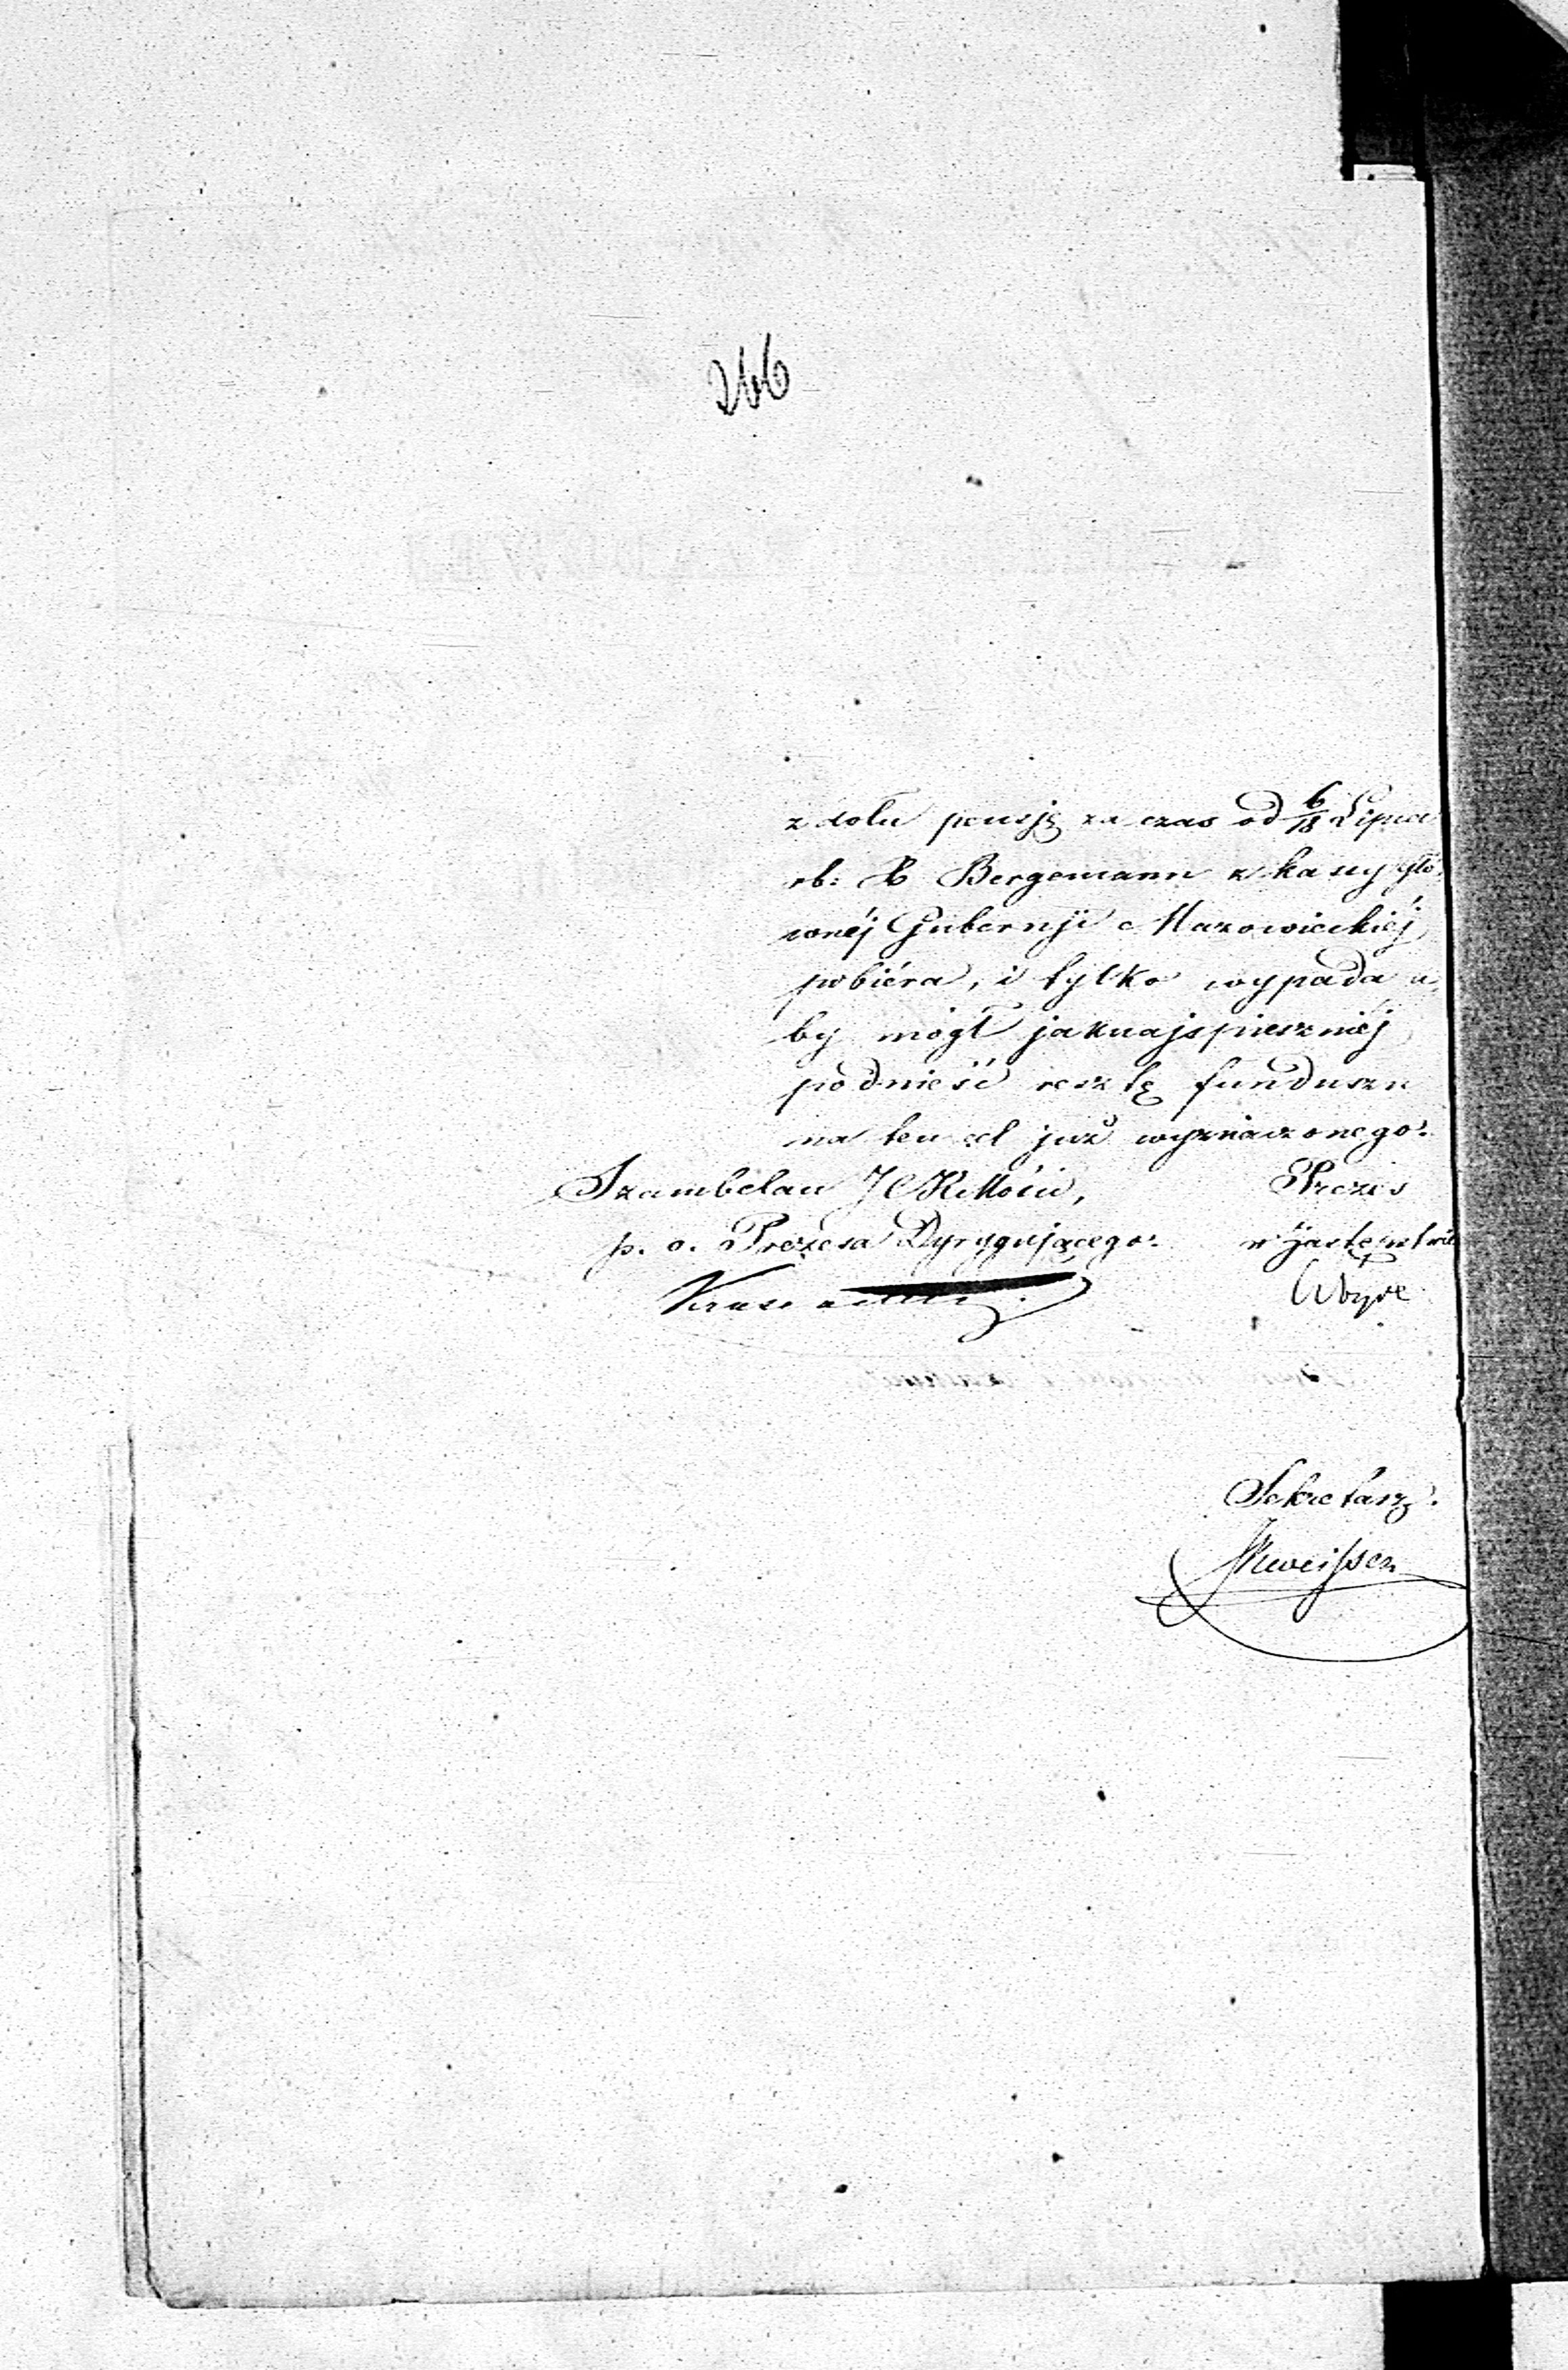 266
z dołu pensję za czas od 6/18 Lipca
rb: X Bergemann z kassy głó-
wnéj Gubernji Mazowieckiéj
pobiéra, i tylko wypada a-
by mógł jaknajspieszniéj
podnieść resztę funduszu
na ten cel już wyznaczonego.
Szambelan J C K Mości, Prezes
p. o. Prezesa Dyrygującego. w Zastępstwie
Sekretarz.